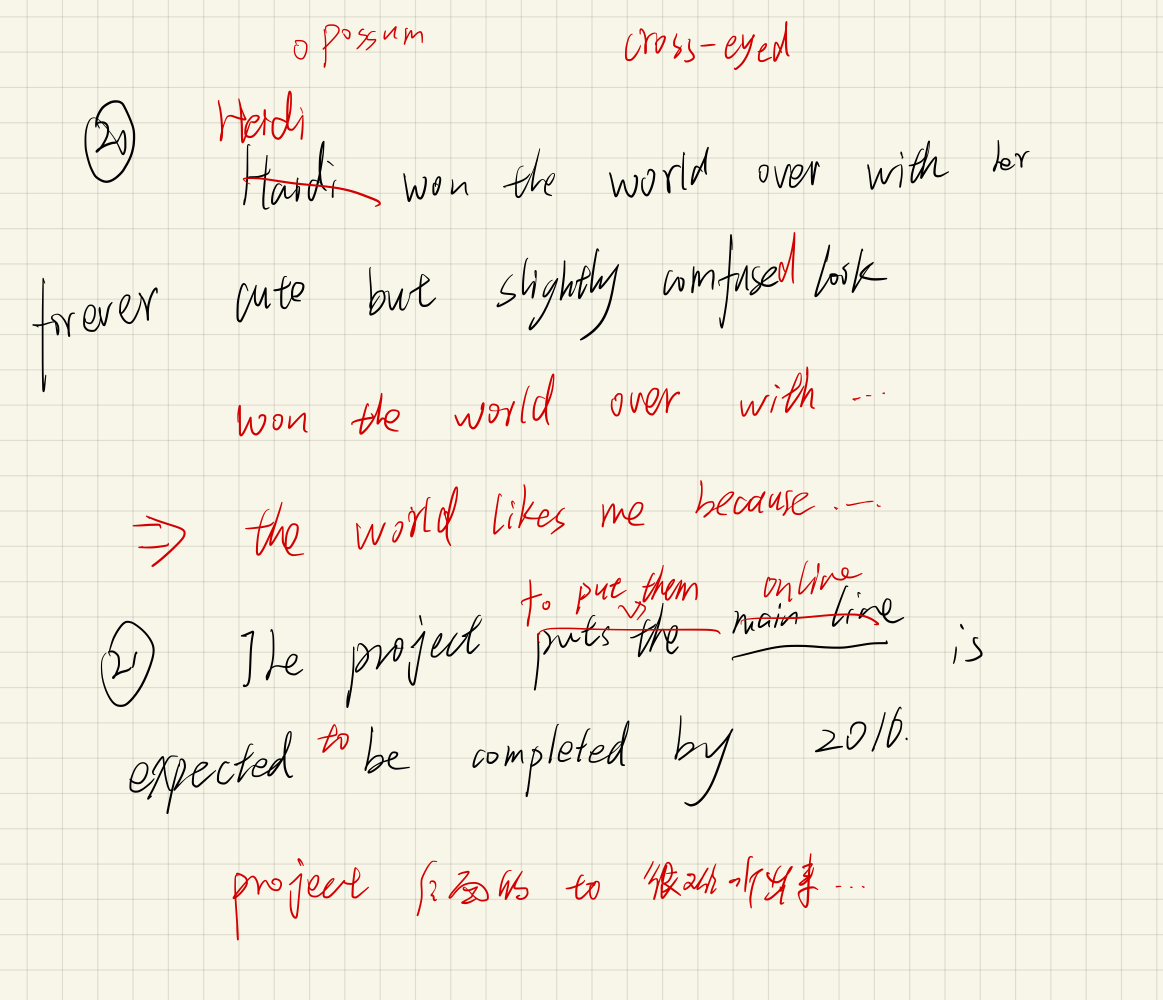 opossum cross-eyed
⑳ Heidi
Hardi won the world over with her
forever cute but slightly comfused look
won the world over with ...
⇒ the world likes me because ...
to put them online
㉑ The project puts the main line is
expected to be completed by 2016.
project 后面的 to 很难听出来...